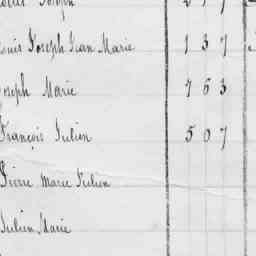 Louis Joseph Jean Marie 1 3 7
Joseph Marie 7 6 3
François Julien 5 0 7
Pierre Marie Julien
Julien Marie